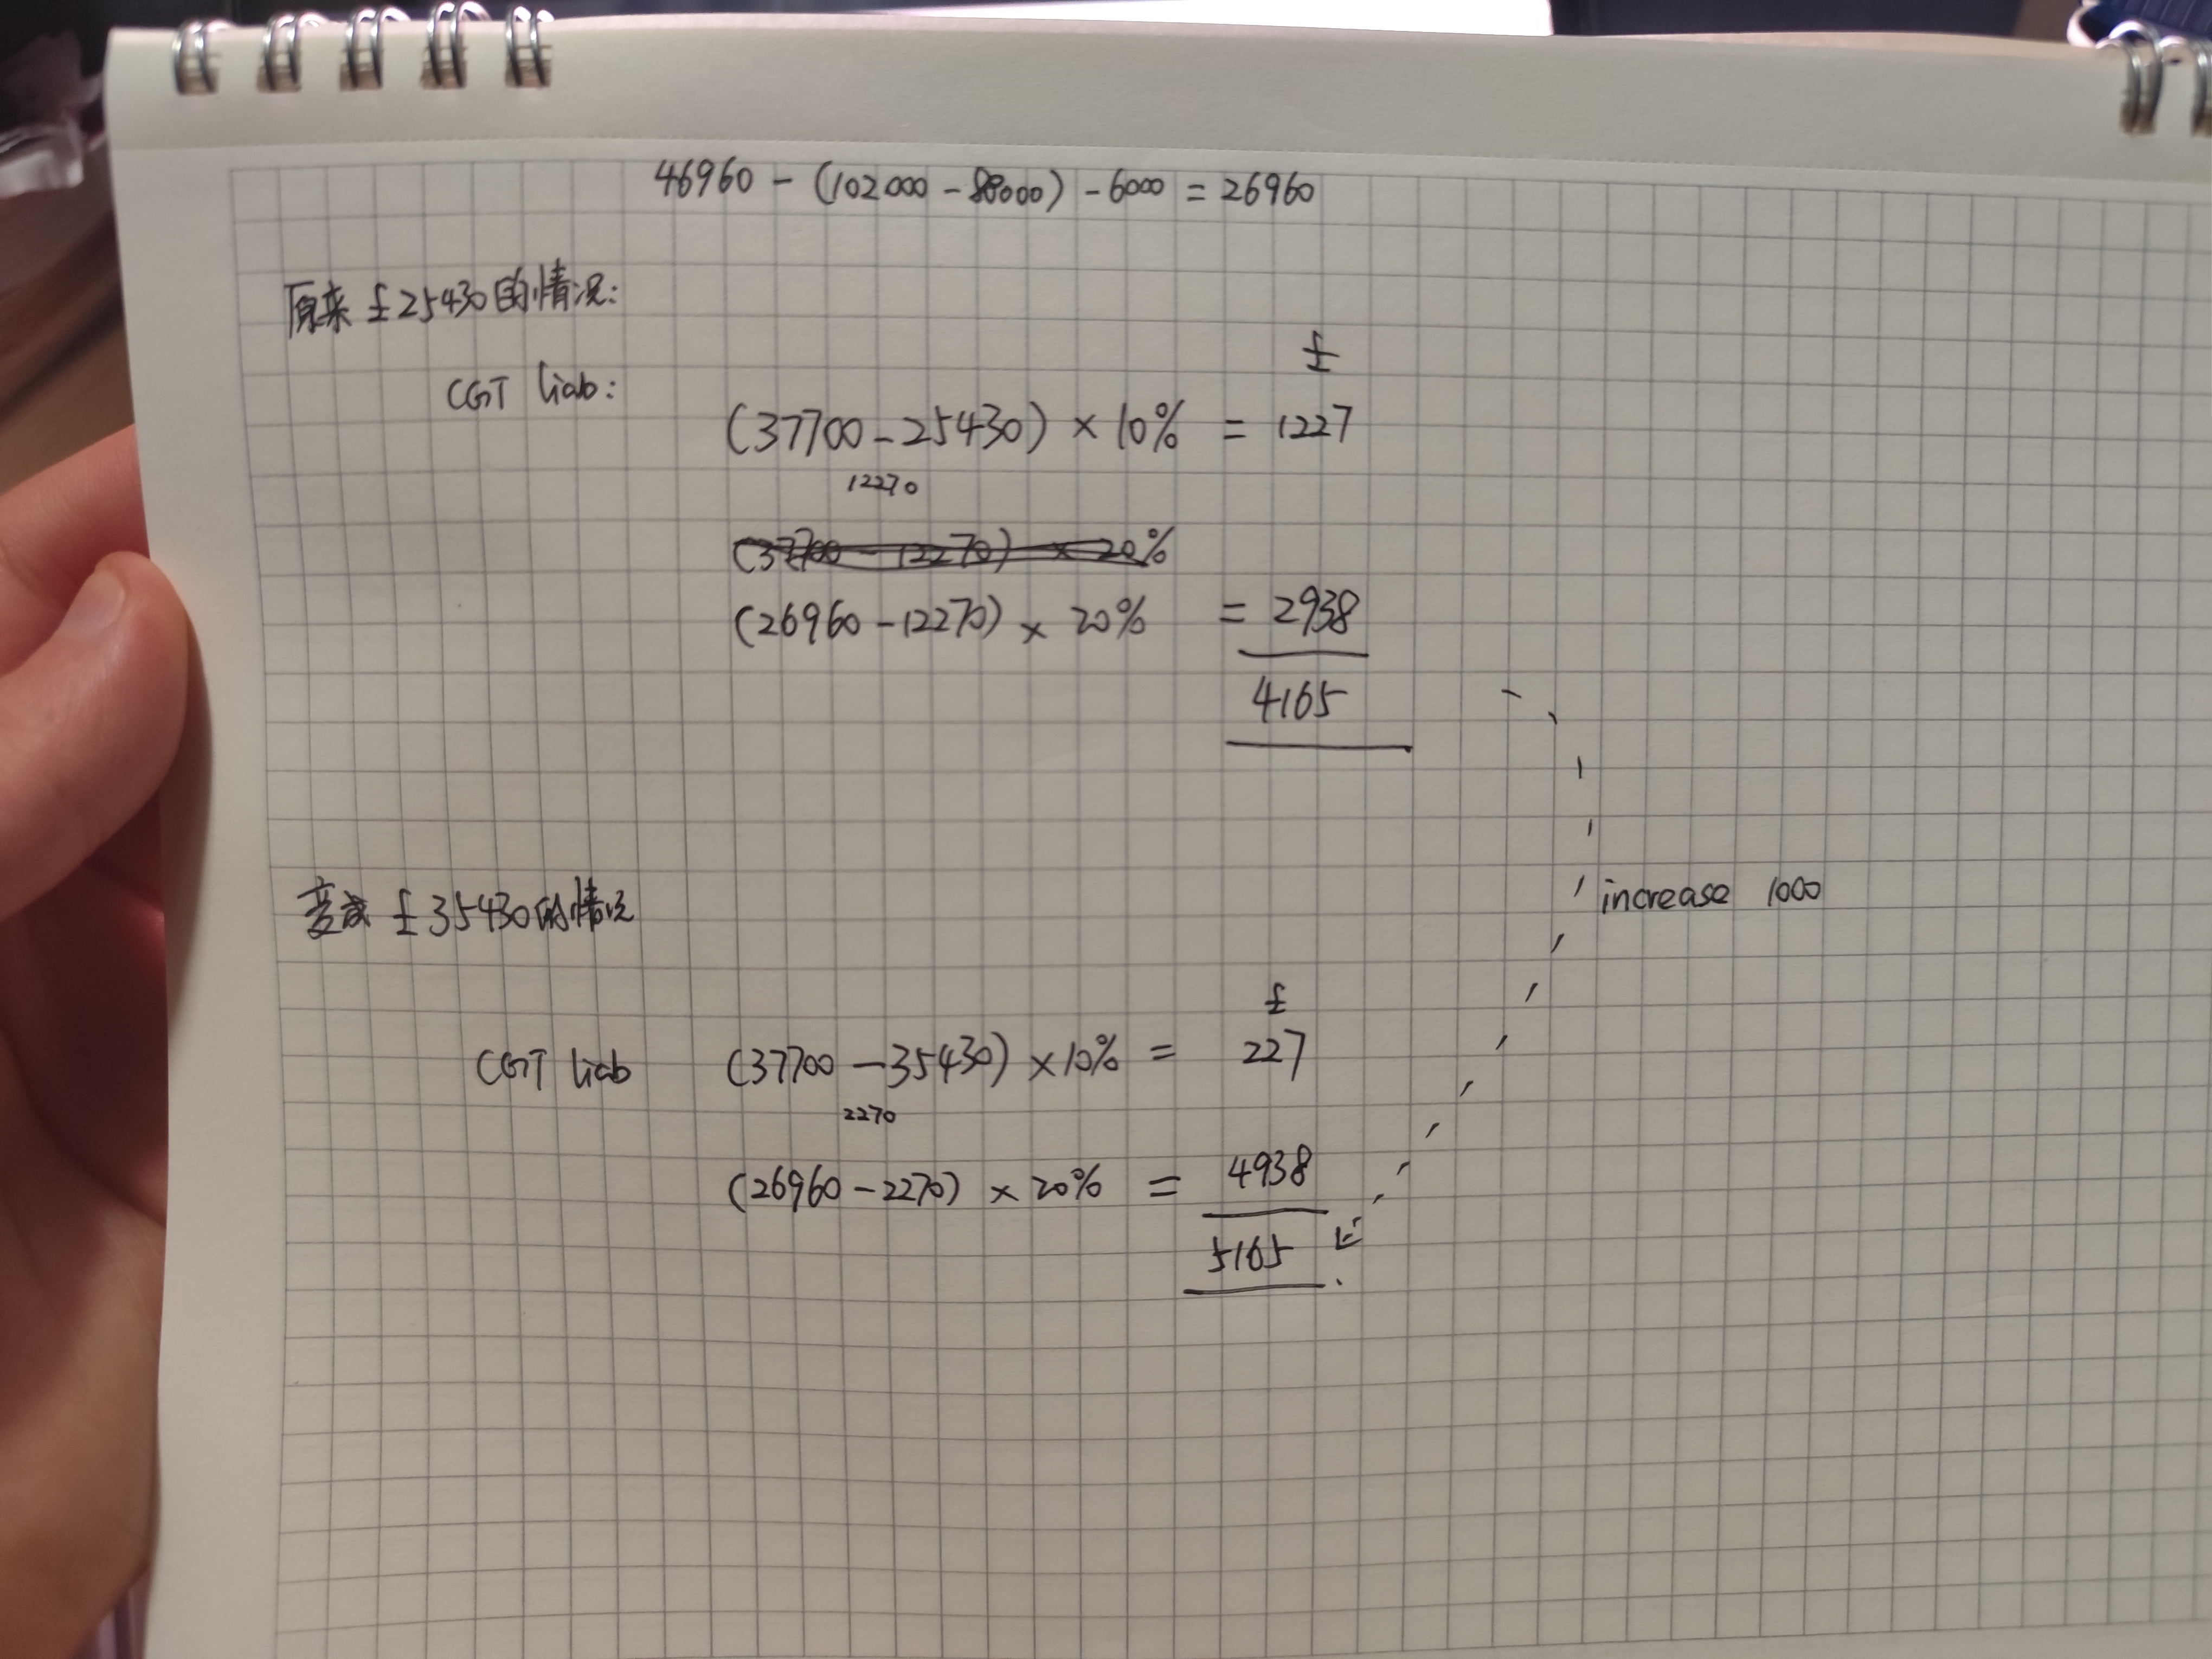 46960 - (102000 - 88000) - 6000 = 26960
原来 £25430的情况:
£
CGT liab:
(37700 - 25430) × 10% = 1227
12270
(37700 - 12270) × 20%
(26960 - 12270) × 20% = 2938
4165
变成 £35430的情况
increase 1000
£
CGT liab (37700 - 35430) × 10% = 227
2270
(26960 - 2270) × 20% = 4938
5165